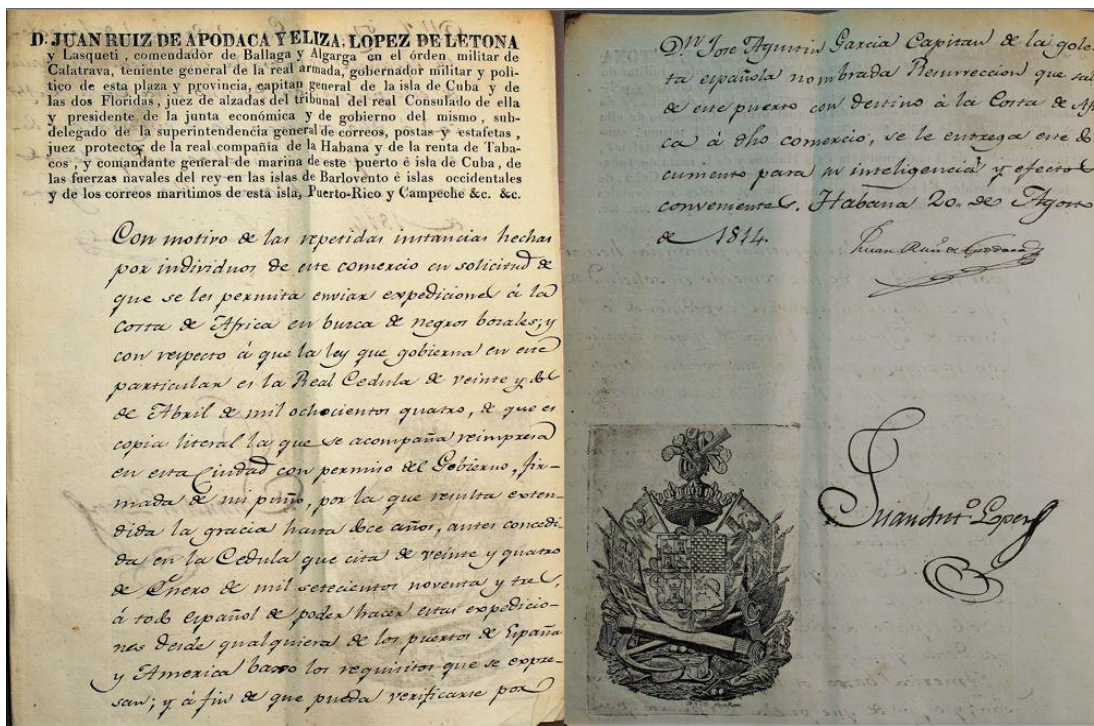 D. JUAN RUIZ DE APODACA Y ELIZA, LOPEZ DE LETONA
y Lasqueti, comendador de Ballaga y Algarga en el órden militar de
Calatrava, teniente general de la real armada, gobernador militar y polí-
tico de esta plaza y provincia, capitan general de la isla de Cuba y de
las dos Floridas, juez de alzadas del tribunal del real Consulado de ella
y presidente de la junta económica y de gobierno del mismo, sub-
delegado de la superintendencia general de correos, postas y estafetas,
juez protector de la real compañia de la Habana y de la renta de Taba-
cos, y comandante general de marina de este puerto é isla de Cuba, de
las fuerzas navales del rey en las islas de Barlovento é islas occidentales
y de los correos maritimos de esta isla, Puerto-Rico y Campeche &c. &c.
Con motivo de las repetidas instancias hechas
por individuos de este comercio en solicitud de
que se les permita enviar expediciones á la
Costa de Africa en busca de negros bozales; y
con respecto á que la ley que gobierna en este
particular es la Real Cedula de veinte y dos
de Abril de mil ochocientos quatro, de que es
copia literal la que se acompaña reimpresa
en esta Ciudad con permiso del Gobierno, fir-
mada de mi puño, por la que resulta exten-
dida la gracia hasta doce años, antes concedi-
da en la Cedula que cita de veinte y quatro
de Enero de mil setecientos noventa y tres,
á todo español de poder hacer estas expedicio-
nes desde qualquiera de los puertos de España
y America baxo los requisitos que se expre-
san; y á fin de que pueda verificarse por
Dn. Jose Agustin Garcia Capitan de la gole-
ta española nombrada Resurreccion que sal
de este puerto con destino à la Costa de Afri
ca á dho comercio, se le entrega este do
cumento para su inteligencia y efectos
convenientes. Habana 20,, de Agosto
de 1814.
Juan Ruiz de Apodaca
Juan Anto. Lopez